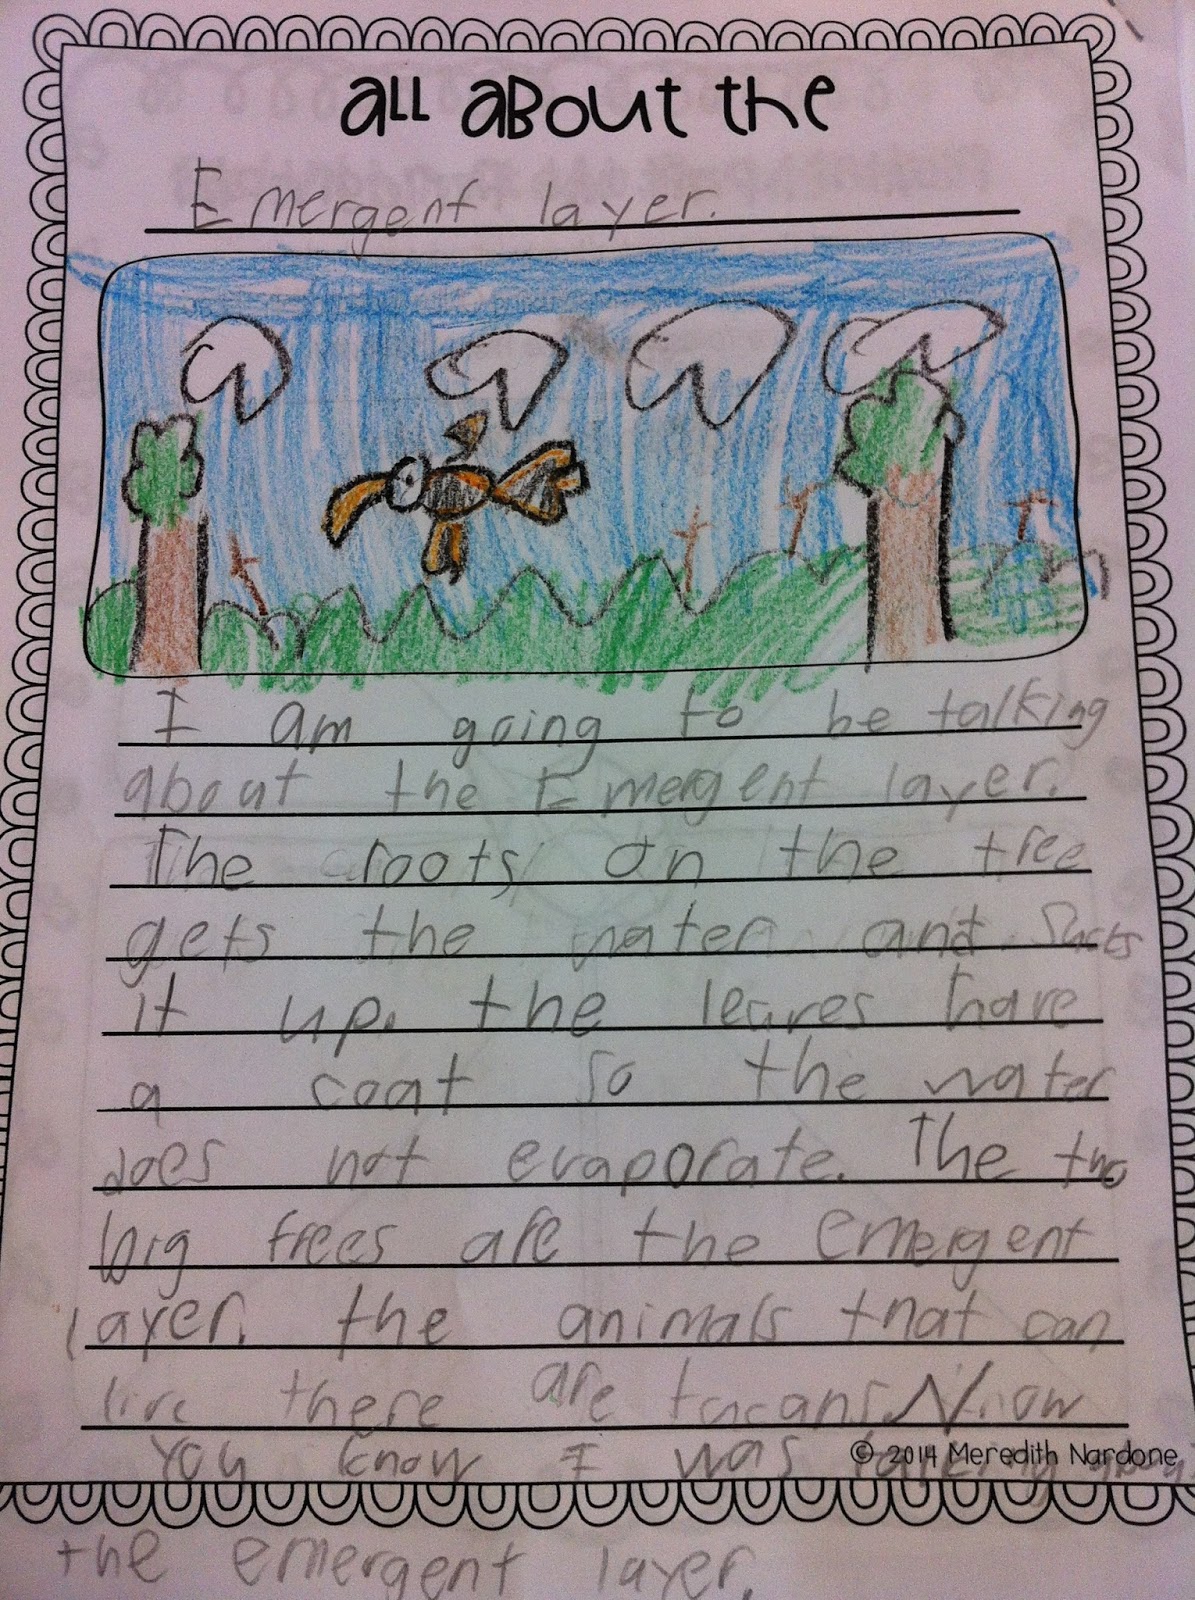 all about the
Emergent layer.
I am going to be talking
about the Emergent layer.
The roots on the tree
gets the water and sucks
it up. the leaves have
a coat so the water
does not evaporate. The two
big trees are the emergent
layer. the animals that can
live there are tucans Now
you know I was talking about
© 2014 Meredith Nardone
the emergent layer.